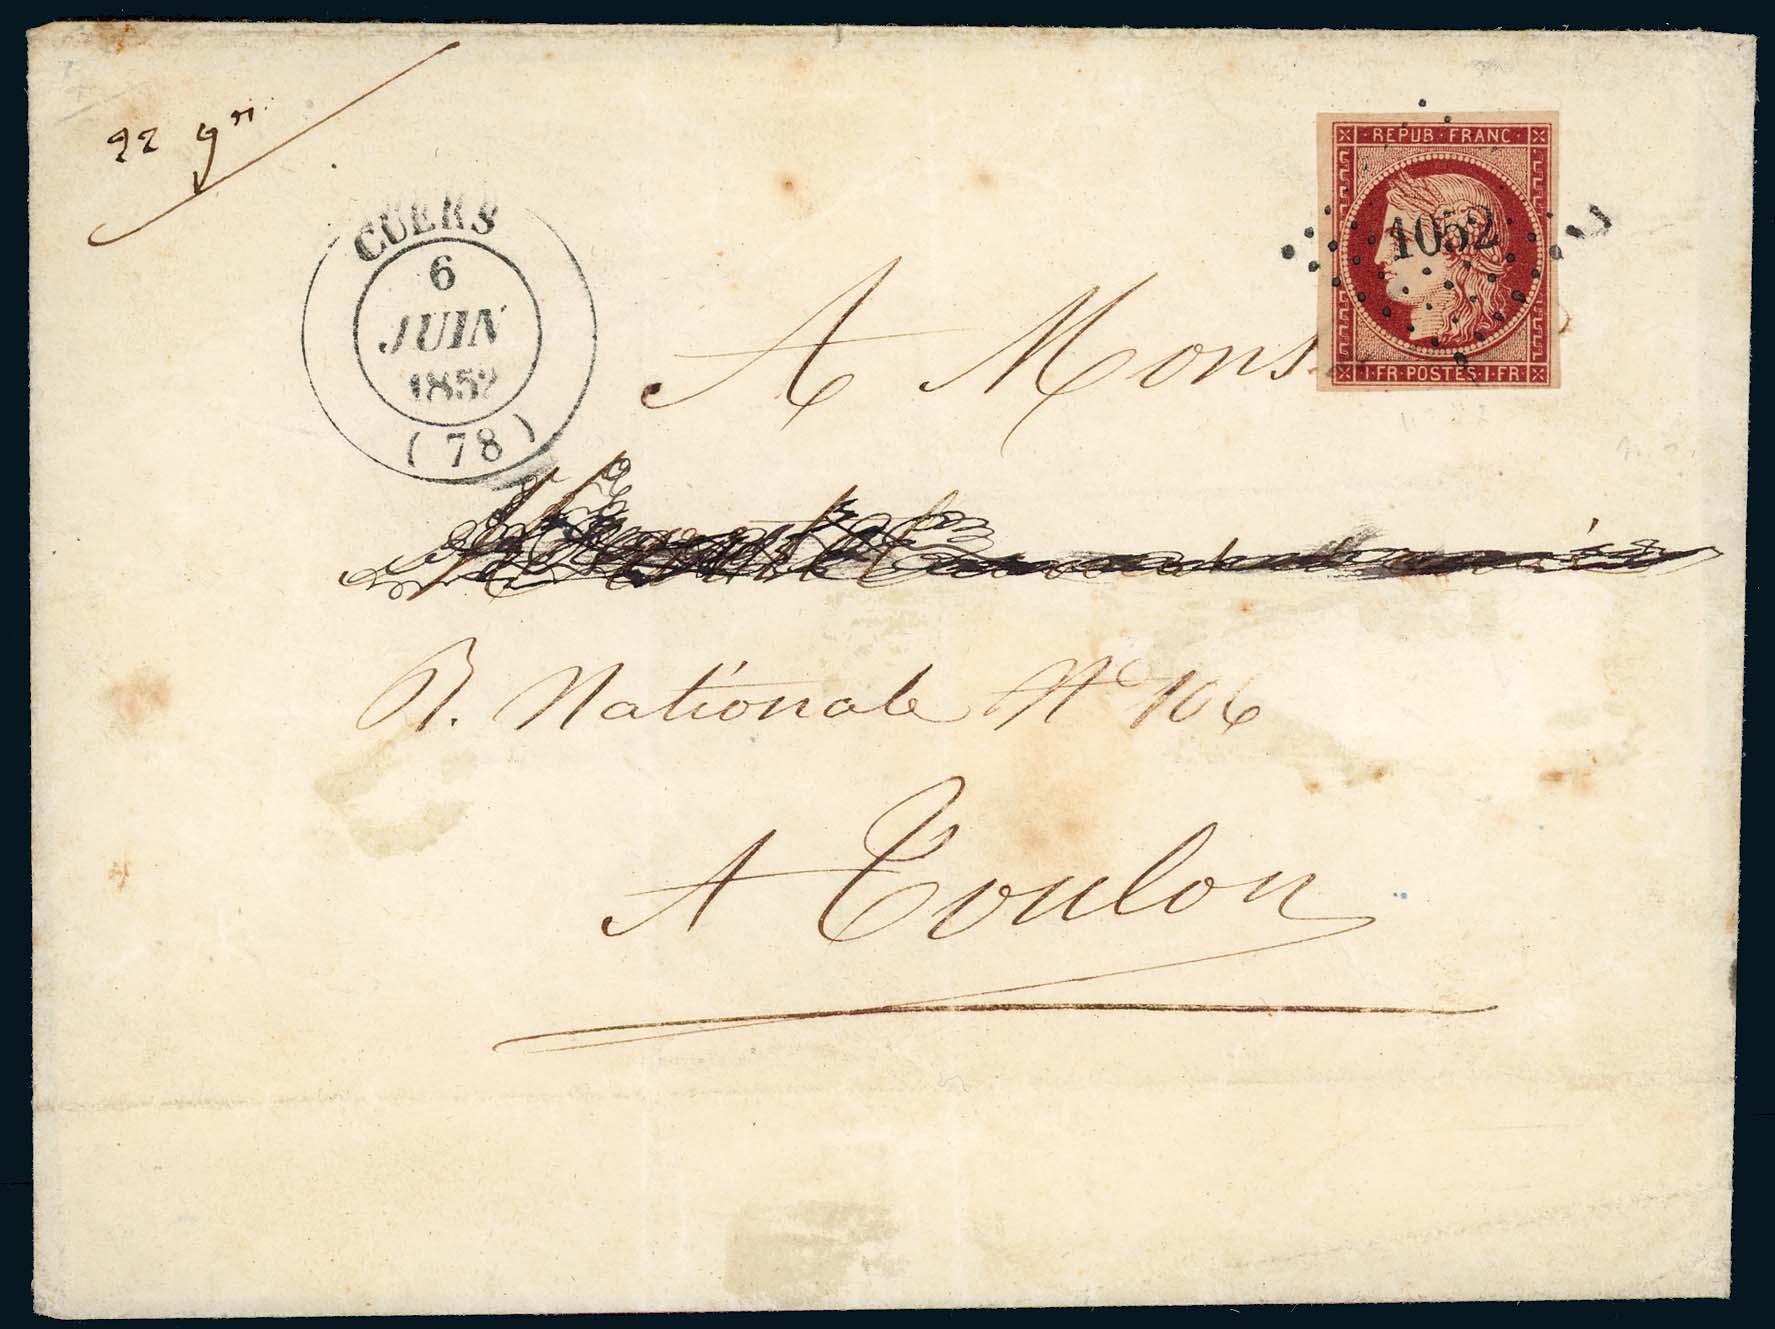 22 gr
CUERS
6
JUIN
1852
(78)
REPUB·FRANC·
1052
1·FR·POSTES·1·FR·
A Mons
R. Nationale N° 106
A Toulon